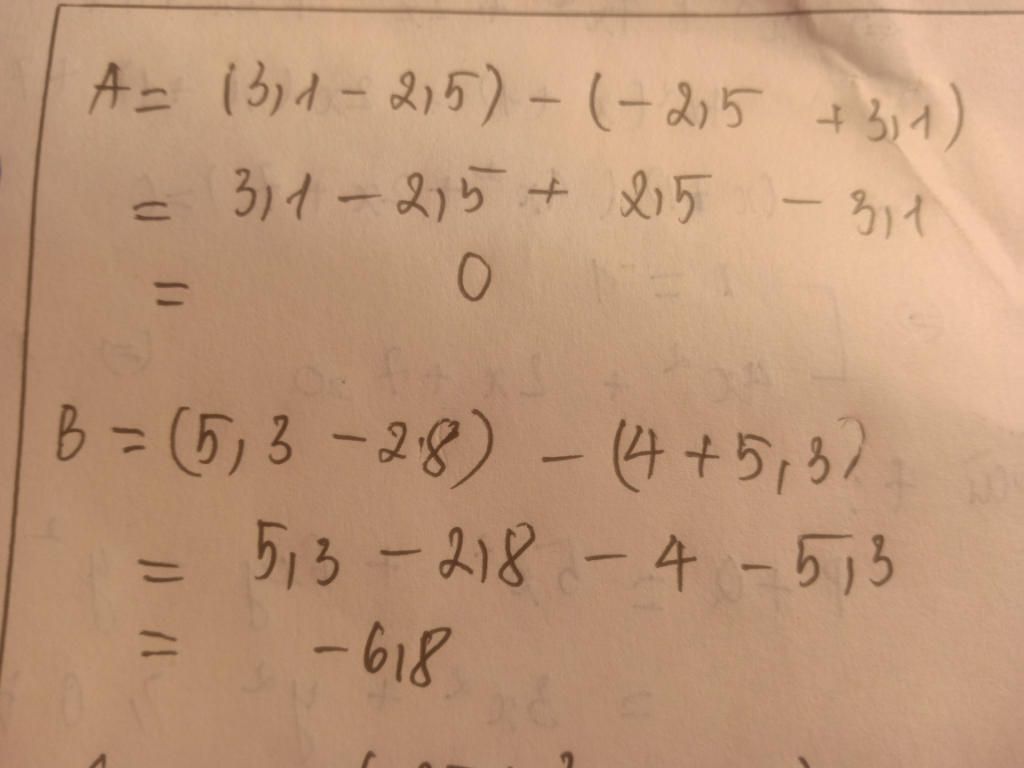 A = (3,1 - 2,5) - (-2,5 + 3,1)
= 3,1 - 2,5 + 2,5 - 3,1
= 0
B = (5,3 - 2,8) - (4 + 5,3)
= 5,3 - 2,8 - 4 - 5,3
= -6,8